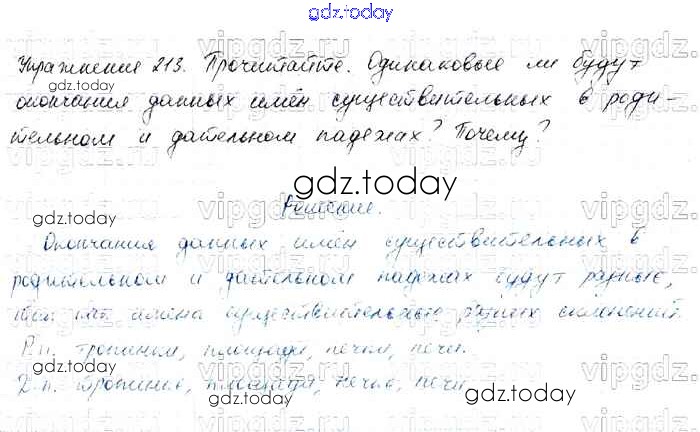 gdz.today
Упражнение 213. Прочитайте. Одинаковые ли будут
окончания данных имён существительных в роди-
тельном и дательном падежах? Почему?
Решение.
Окончания данных имён существительных в
родительном и дательном падежах будут разные,
так как имена существительные разных склонений.
Р.п. тропинки, площади, печки, печи.
Д.п. тропинке, площади, печке, печи